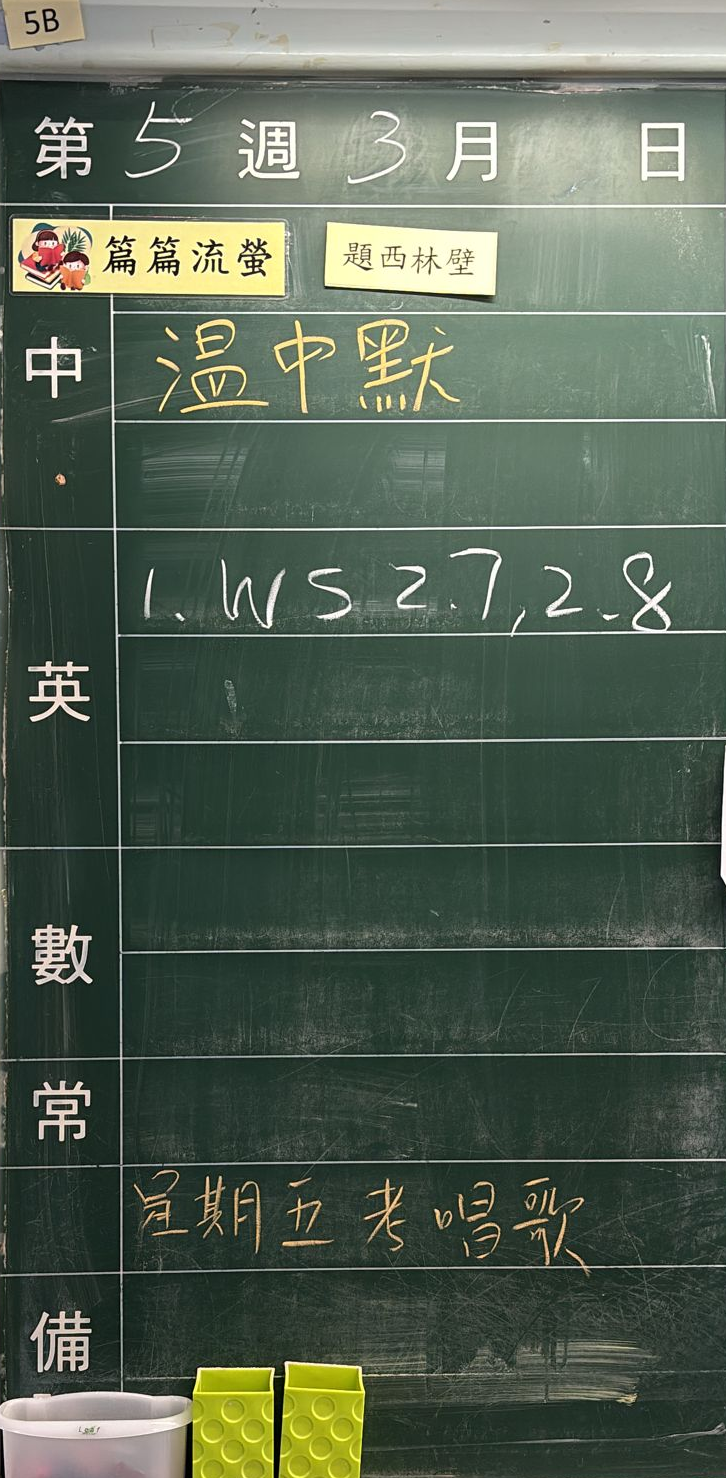 5B
第5週3月 日
篇篇流螢 題西林壁
中 溫中默
英 1. WS 2.7, 2.8
數
常
星期五考唱歌
備